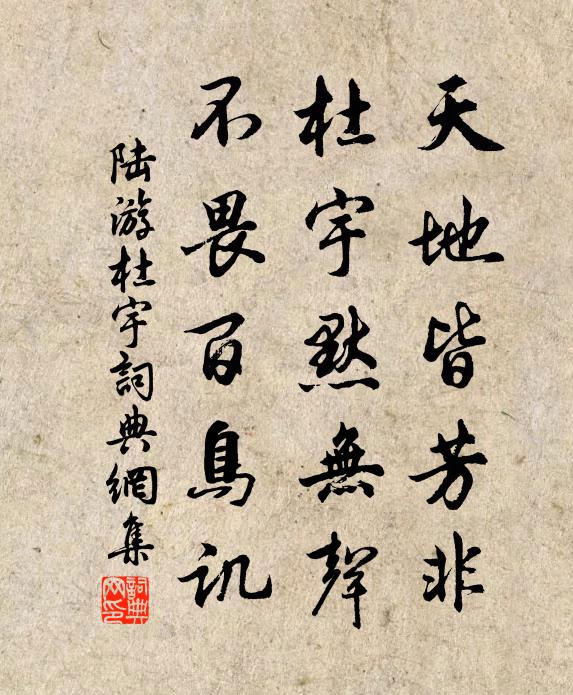 天地皆芳非
杜宇默無聲
不畏百鳥訊
陸游杜宇詞典網集
詞典網印